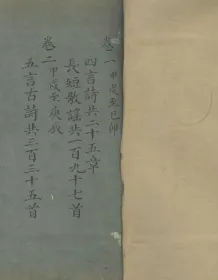 卷一甲戌至己卯
四言詩共二十五章
長短歌謠共一百九十七首
卷二甲戌至庚戌
五言古詩共三百三十五首